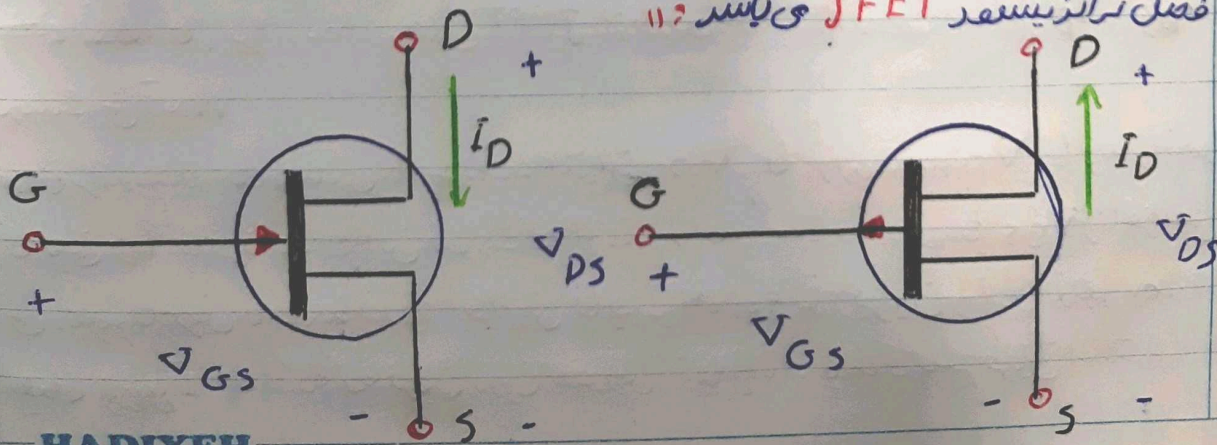 فصل ترانزیستور JFET می باشد "
D
+
I_D
G
+
V_GS
V_DS
-
S
-
D
+
I_D
G
+
V_GS
V_DS
-
S
-
HADIYEH